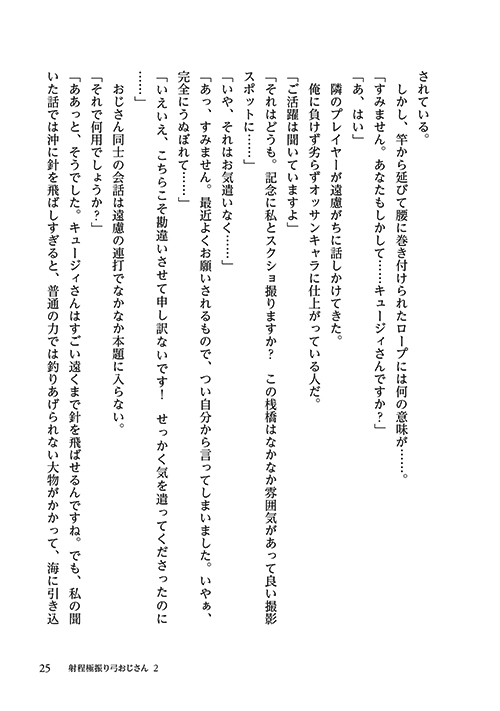 されている。
　しかし、竿から延びて腰に巻き付けられたロープには何の意味が……。
「すみません。あなたもしかして……キュージィさんですか？」
「あ、はい」
　隣のプレイヤーが遠慮がちに話しかけてきた。
　俺に負けず劣らずオッサンキャラに仕上がっている人だ。
「ご活躍は聞いていますよ」
「それはどうも。記念に私とスクショ撮りますか？　この桟橋はなかなか雰囲気があって良い撮影
スポットに……」
「いや、それはお気遣いなく……」
「あっ、すみません。最近よくお願いされるもので、つい自分から言ってしまいました。いやぁ、
完全にうぬぼれて……」
「いえいえ、こちらこそ勘違いさせて申し訳ないです！　せっかく気を遣ってくださったのに
……」
　おじさん同士の会話は遠慮の連打でなかなか本題に入らない。
「それで何用でしょうか？」
「ああっと、そうでした。キュージィさんはすごい遠くまで針を飛ばせるんですね。でも、私の聞
いた話では沖に針を飛ばしすぎると、普通の力では釣りあげられない大物がかかって、海に引き込
25　射程極振り弓おじさん 2